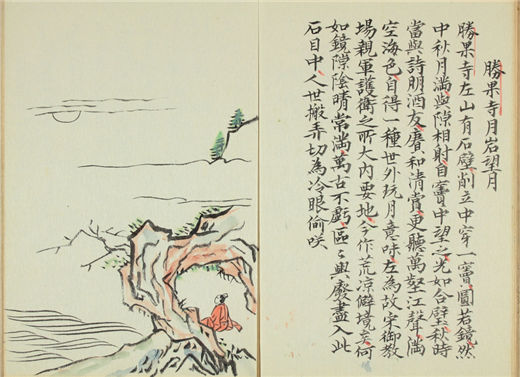 勝果寺月岩望月
勝果寺左山有石壁削立中穿一竇圓若鏡然
中秋月滿與隙相射自竇中望之光如合璧秋時
當與詩朋酒友賡和清賞更聽萬壑江聲滿
空海色自得一種世外玩月意味左為故宋御教
場親軍護衛之所大內要地今作荒凉僻境矣何
如鏡隙陰晴常滿萬古不虧區〻興廢盡入此
石目中人世搬弄切為冷眼偷咲